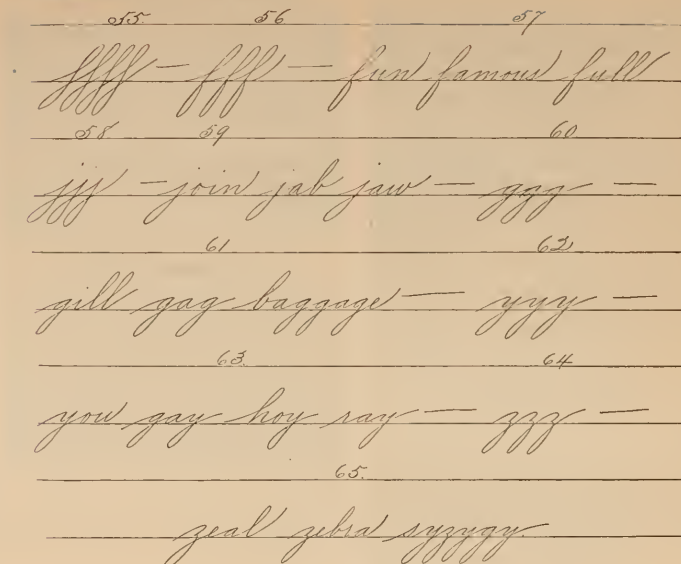 55. 56 57
ffff — fff — fun famous full
58 59 60
jjj — join jab jaw — ggg —
61 62
gill gag baggage — yyy —
63. 64
you gay hoy ray — zzz —
65.
zeal zebra syzygy